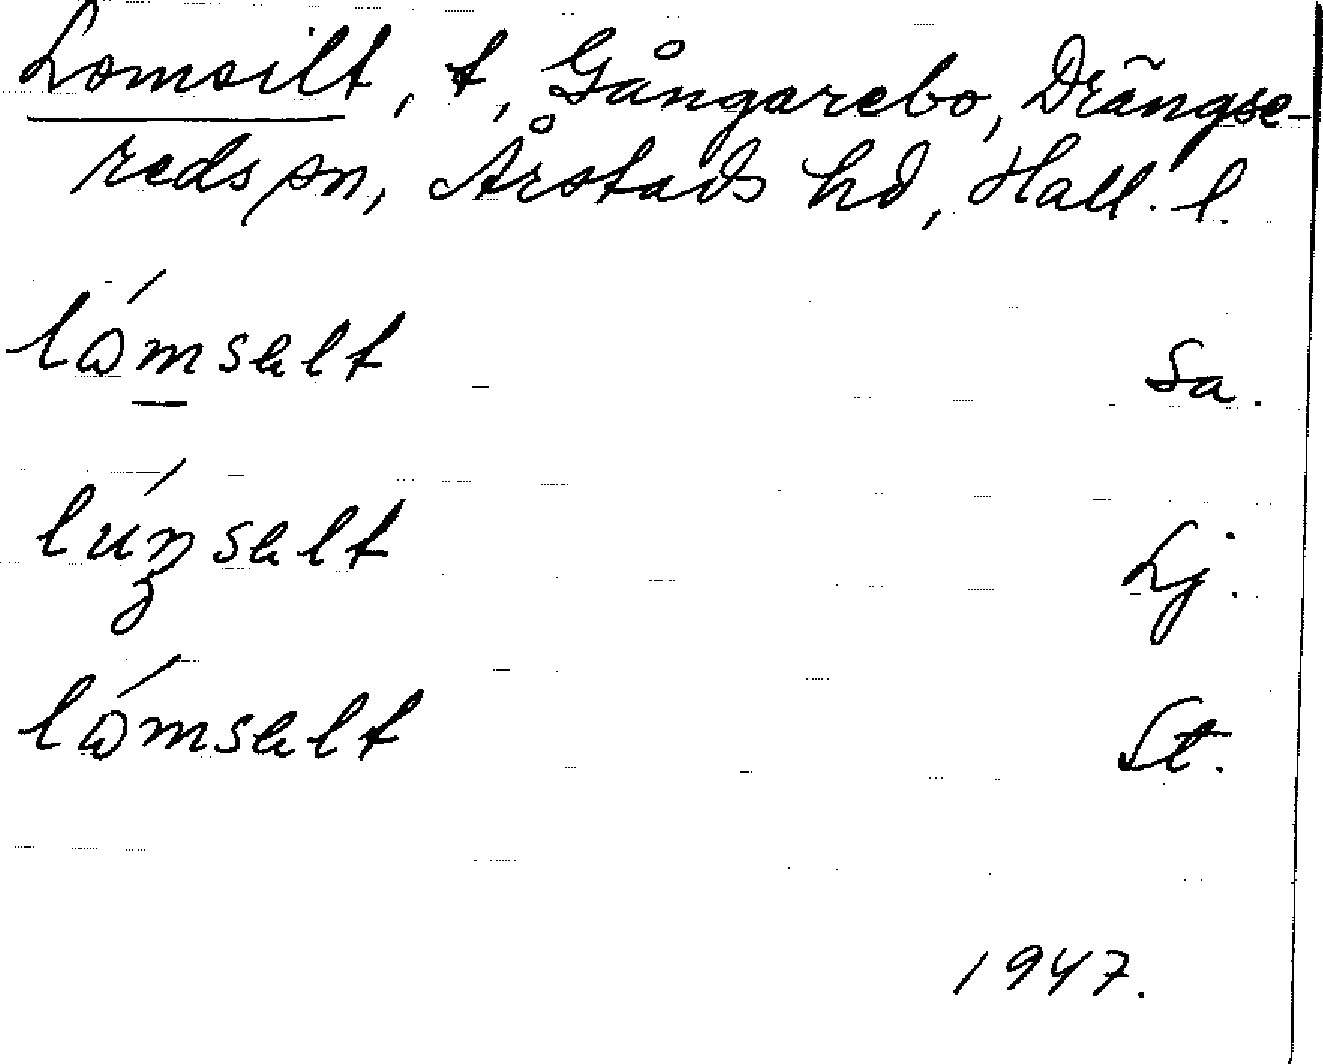 Lomsilt, t, Gångarebo, Drängse-
reds sn, Årstads hd, Hall. l.
lómselt Sa.
lúŋselt Lj.
lómselt St.
1947.